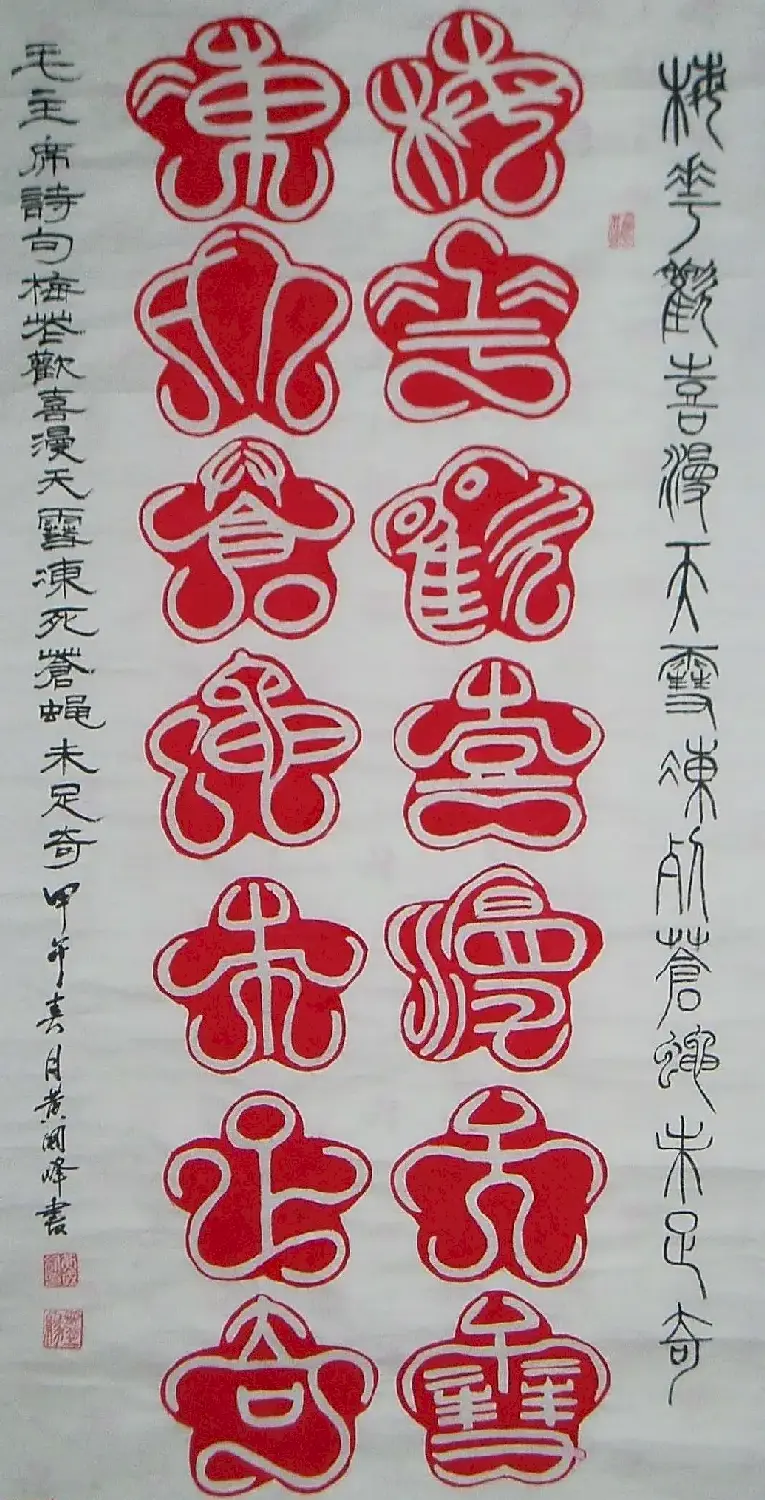 梅花歡喜漫天雪凍死蒼蠅未足奇
梅花歡喜漫天雪
凍死蒼蠅未足奇
毛主席詩句梅花歡喜漫天雪凍死蒼蠅未足奇甲午春月黄國峰書